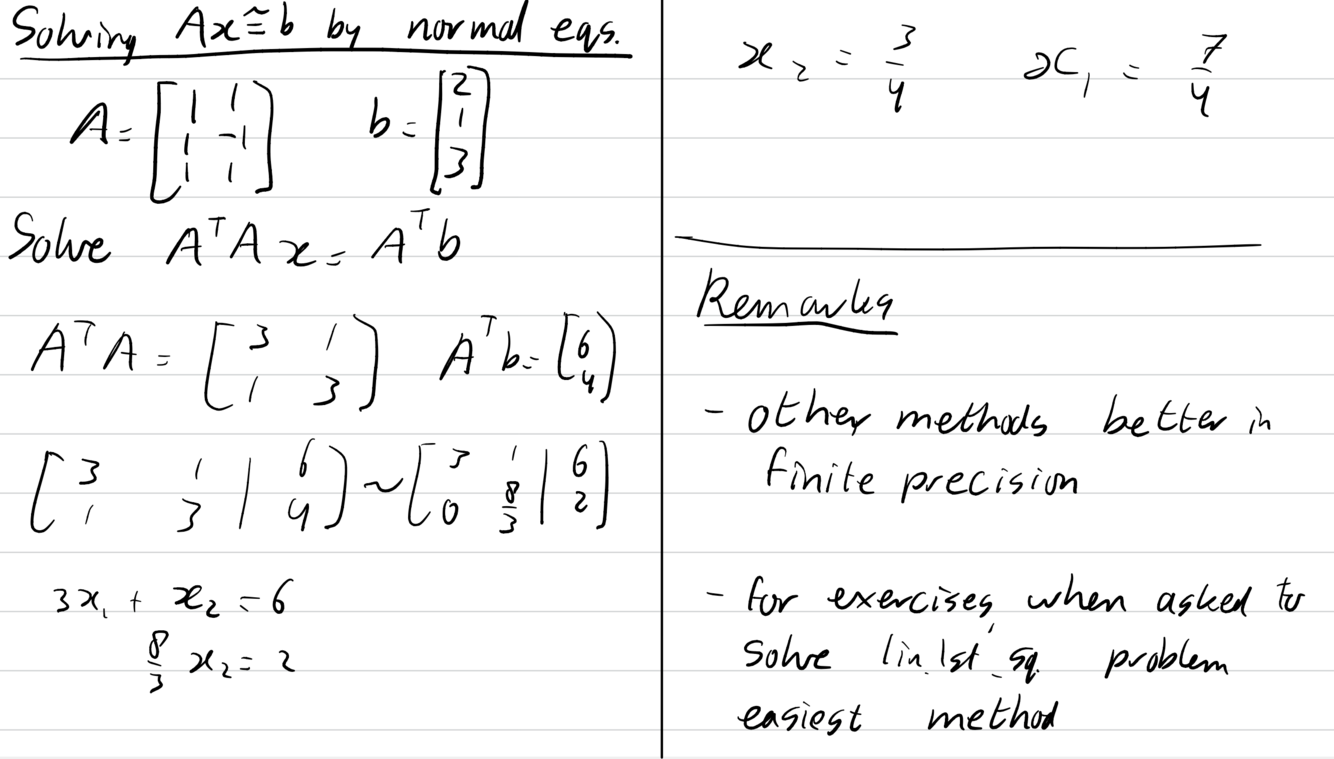 Solving Ax ≅ b by normal eqs.
A = [1 1; 1 -1; 1 1] b = [2; 1; 3]
Solve AᵀA x = Aᵀb
AᵀA = [3 1; 1 3] Aᵀb = [6; 4]
[3 1 | 6; 1 3 | 4] ~ [3 1 | 6; 0 8/3 | 2]
3x₁ + x₂ = 6
8/3 x₂ = 2
x₂ = 3/4 x₁ = 7/4
Remarks
- other methods better in
finite precision
- for exercises when asked to
solve lin. lst. sq. problem
easiest method